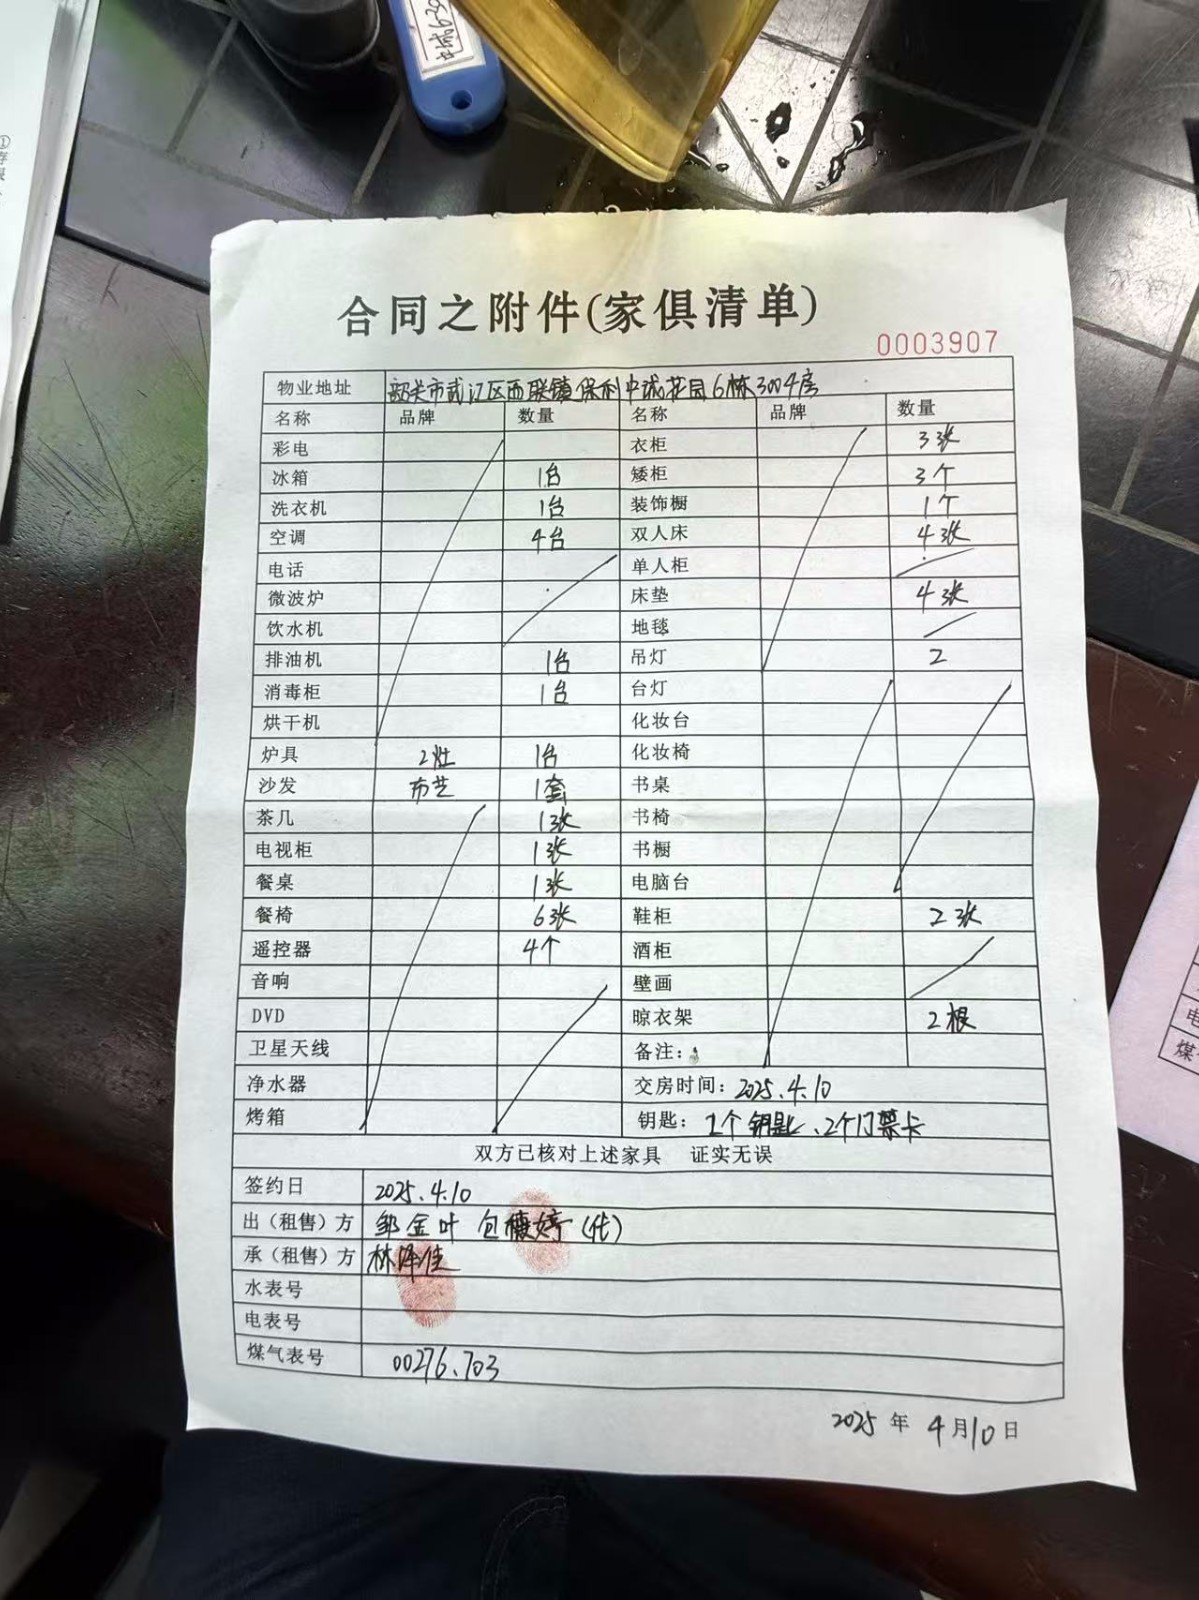 合同之附件(家俱清单)
0003907
物业地址 韶关市武江区西联镇保利中城花园6栋3004房
名称 品牌 数量 名称 品牌 数量
彩电 衣柜 3张
冰箱 1台 矮柜 3个
洗衣机 1台 装饰橱 1个
空调 4台 双人床 4张
电话 单人柜
微波炉 床垫 4张
饮水机 地毯
排油机 1台 吊灯 2
消毒柜 1台 台灯
烘干机 化妆台
炉具 2灶 1台 化妆椅
沙发 布艺 1套 书桌
茶几 1张 书椅
电视柜 1张 书橱
餐桌 1张 电脑台
餐椅 6张 鞋柜 2张
遥控器 4个 酒柜
音响 壁画
DVD 晾衣架 2根
卫星天线 备注:
净水器 交房时间: 2025.4.10
烤箱 钥匙: 1个钥匙、2个门禁卡
双方已核对上述家具 证实无误
签约日 2025.4.10
出（租售）方 邹金叶 包 婷(代)
承（租售）方 林泽佳
水表号
电表号
煤气表号 00276.703
2025 年 4 月 10 日